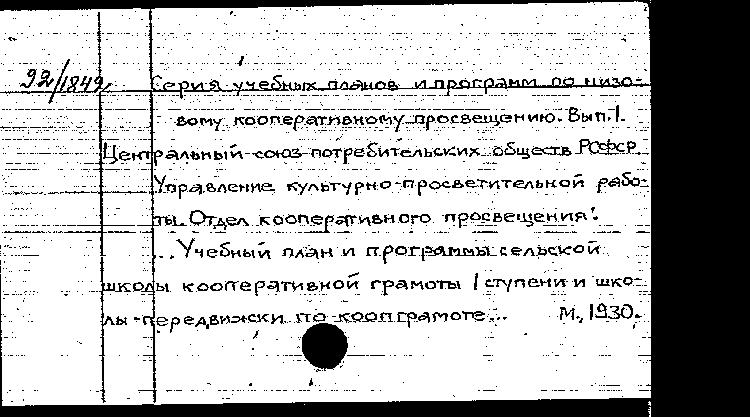 92/1849. Серия учебных планов и программ по низо-
вому кооперативному просвещению. Вып. 1.
Центральный союз потребительских обществ РСФСР.
Управление культурно-просветительной рабо-
ты. Отдел кооперативного просвещения.
... Учебный план и программы сельской
школы кооперативной грамоты I ступени и шко-
лы-передвижки по коопграмоте... М., 1930.